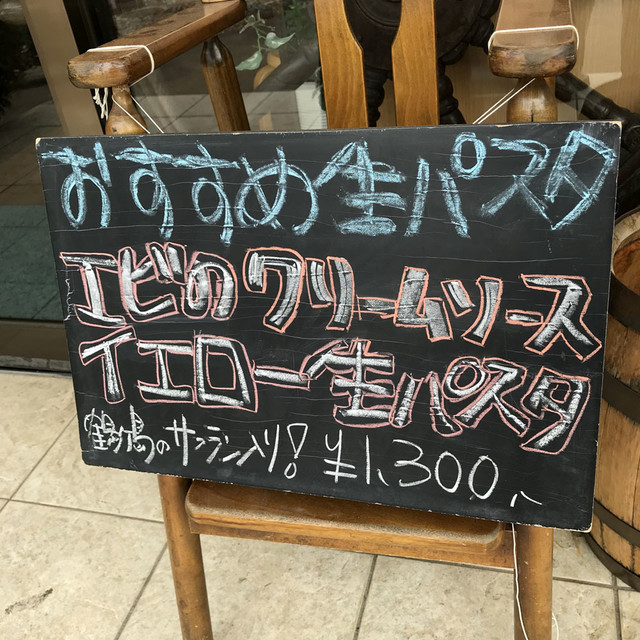 おすすめ生パスタ
エビのクリームソース
イエロー生パスタ
鶴ヶ島のサフラン入り! ¥1,300,,